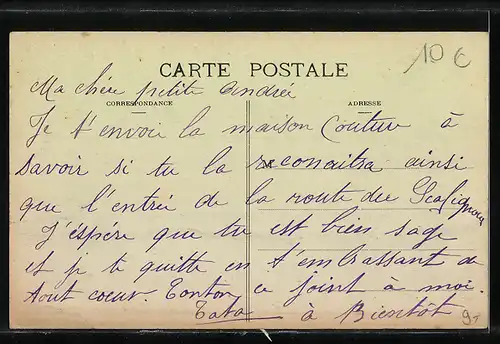 10 €
CARTE POSTALE
Ma chère petite Andrée
CORRESPONDANCE
ADRESSE
Je t'envoie la maison Couture à
savoir si tu la reconaitra ainsi
que l'entrée de la route de
J'éspère que tu est bien sage
et je te quitte en t'embrassant de
tout coeur. Tonton ce joint à moi.
Tata à Bientôt
9-